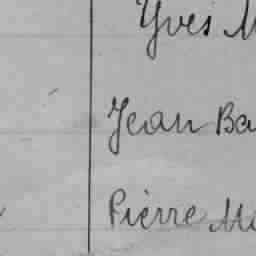 Yves M
Jean Ba
Pierre Ma